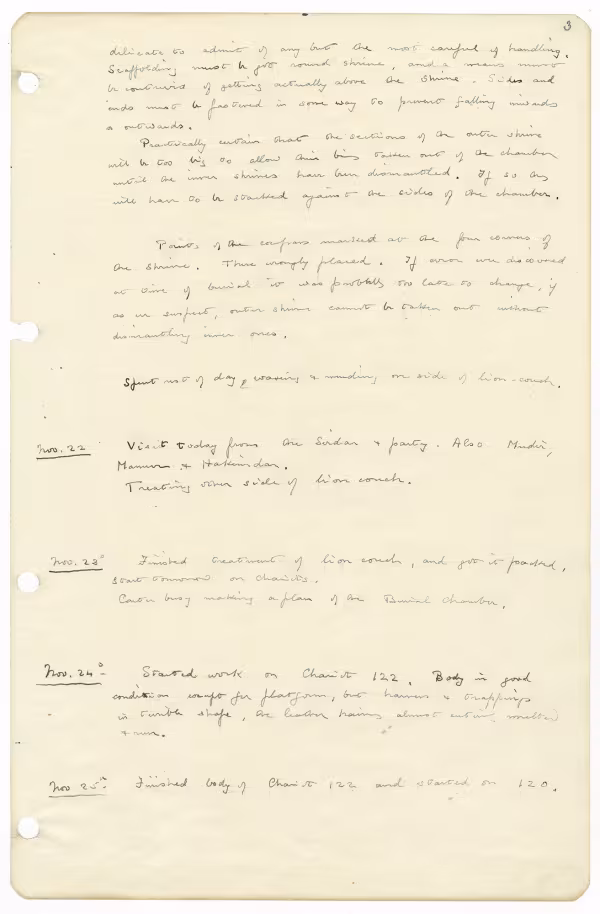 3
delicate to admit of any but the most careful of handling.
Scaffolding must be got round shrine, and a means must
be contrived of getting actually above the shrine. Sides and
ends must be fastened in some way to prevent falling inwards
or outwards.
Practically certain that the sections of the outer shrine
will be too big to allow their being taken out of the chamber
until the inner shrines have been dismantled. If so they
will have to be stacked against the sides of the chamber.
Points of the compass marked at the four corners of
the shrine. These wrongly placed. If error were discovered
at time of burial it was probably too late to change, if
as we suspect, outer shrine cannot be taken out without
dismantling inner ones.
Spent rest of day waxing & mending one side of lion-couch.
Nov. 22 Visit today from the Sirdar & party. Also Mudir,
Mamur & Hakimdar.
Treating other side of lion couch.
Nov. 23 Finished treatment of lion couch, and got it packed,
start tomorrow on chariots.
Carter busy making a plan of the Burial Chamber.
Nov. 24 Started work on Chariot 122. Body in good
condition except for platform, but harness & trappings
in terrible shape, the leather having almost entirely melted
& run.
Nov 25 Finished body of Chariot 122 and started on 120.